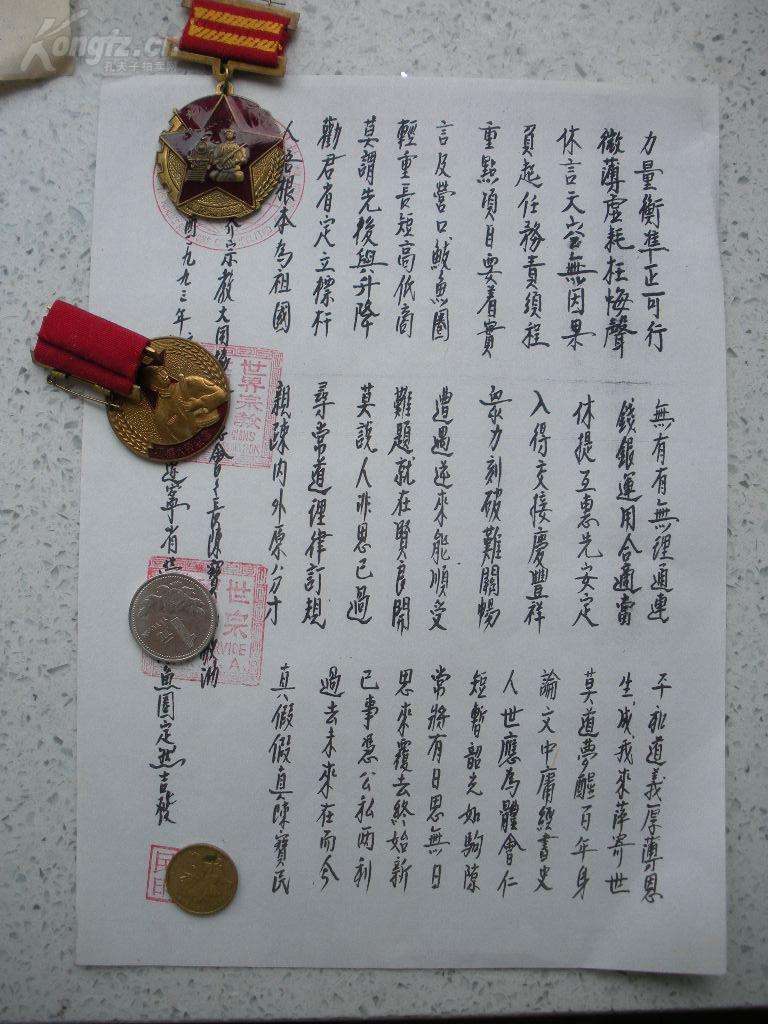 力量衡準正可行
微薄虛耗枉悔聲
休言天定無因果
負起任務責須程
重點項目要着實
言及營口鮁魚圈
輕重長短高低商
莫謂先後與升降
勸君省定立標杆
根本為祖國
無有有無理通連
錢銀運用合適當
休提互惠先安定
入得交接慶豐祥
眾力刻破難關暢
遭遇逆來能順受
難題就在賢良開
莫說人非思己過
尋常道理律訂規
親疎內外原分寸
平和道義厚薄恩
生滅我來萍寄世
莫道夢醒百年身
論文中庸經書史
人世應為體會仁
短暫韶光如駒隙
常將有日思無日
思來覆去終始新
己事憑公私兩利
過去未來在而今
真假假真陳寶民
界宗教大同 會會長陳寶
一九九三年 遼寧省 魚圈定然吉發
世界宗教
世宗
VICE
A.
Kongfz.cn